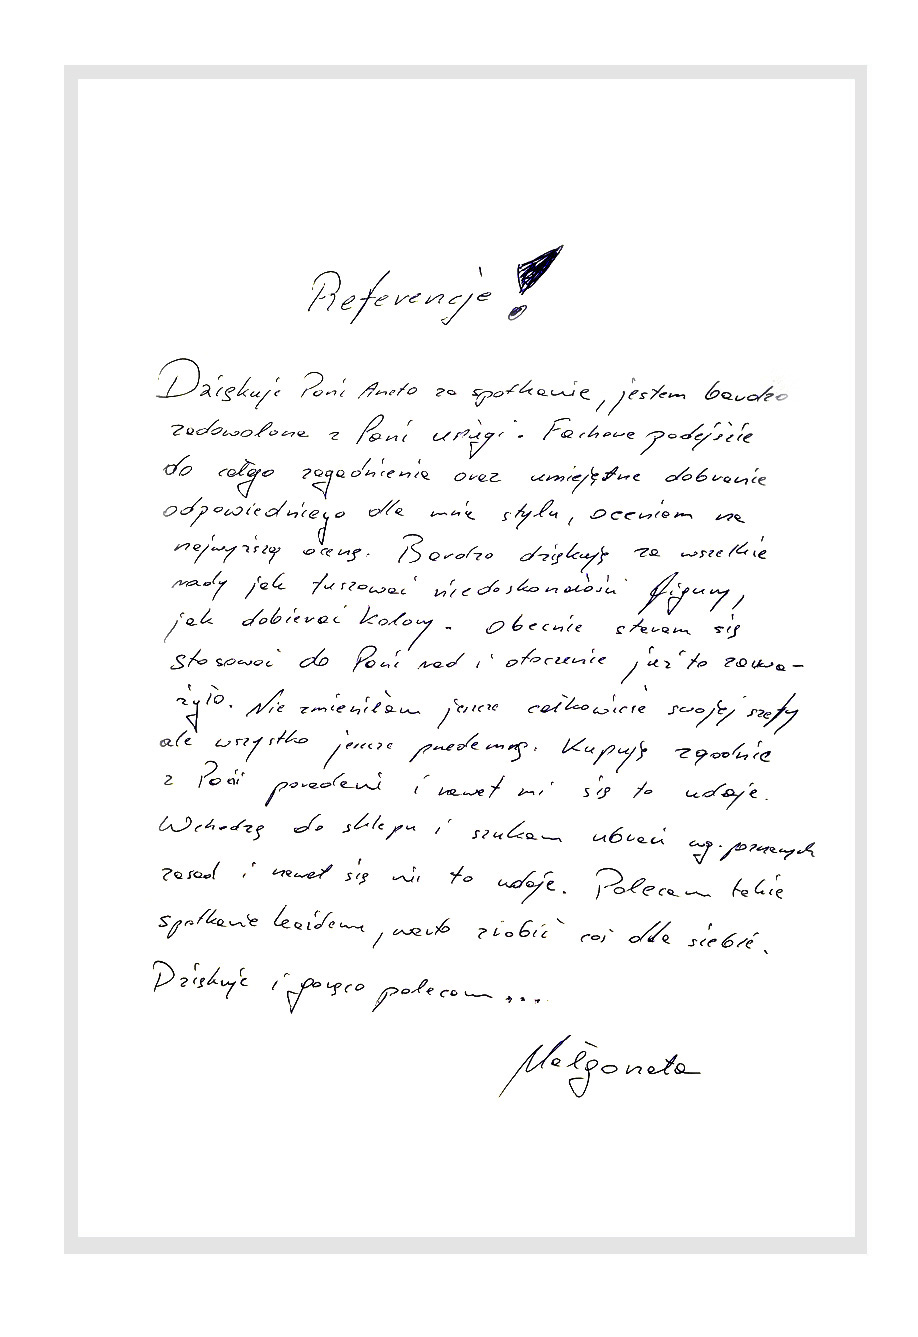 Referencje !
Dziękuję Pani Aneto za spotkanie, jestem bardzo
zadowolona z Pani usługi. Fachowe podejście
do całego zagadnienia oraz umiejętne dobranie
odpowiedniego dla mnie stylu, oceniam na
najwyższą ocenę. Bardzo dziękuję za wszelkie
rady jak tuszować niedoskonałości figury,
jak dobierać kolory. Obecnie staram się
stosować do Pani rad i otoczenie już to zauwa-
żyło. Nie zmieniłam jeszcze całkowicie swojej szafy
ale wszystko jeszcze przede mną. Kupuję zgodnie
z Pani poradami i nawet mi się to udaje.
Wchodzę do sklepu i szukam ubrań wg. poznanych
zasad i nawet się mi to udaje. Polecam takie
spotkanie każdemu, warto zrobić coś dla siebie.
Dziękuję i gorąco polecam ...
Małgorzata